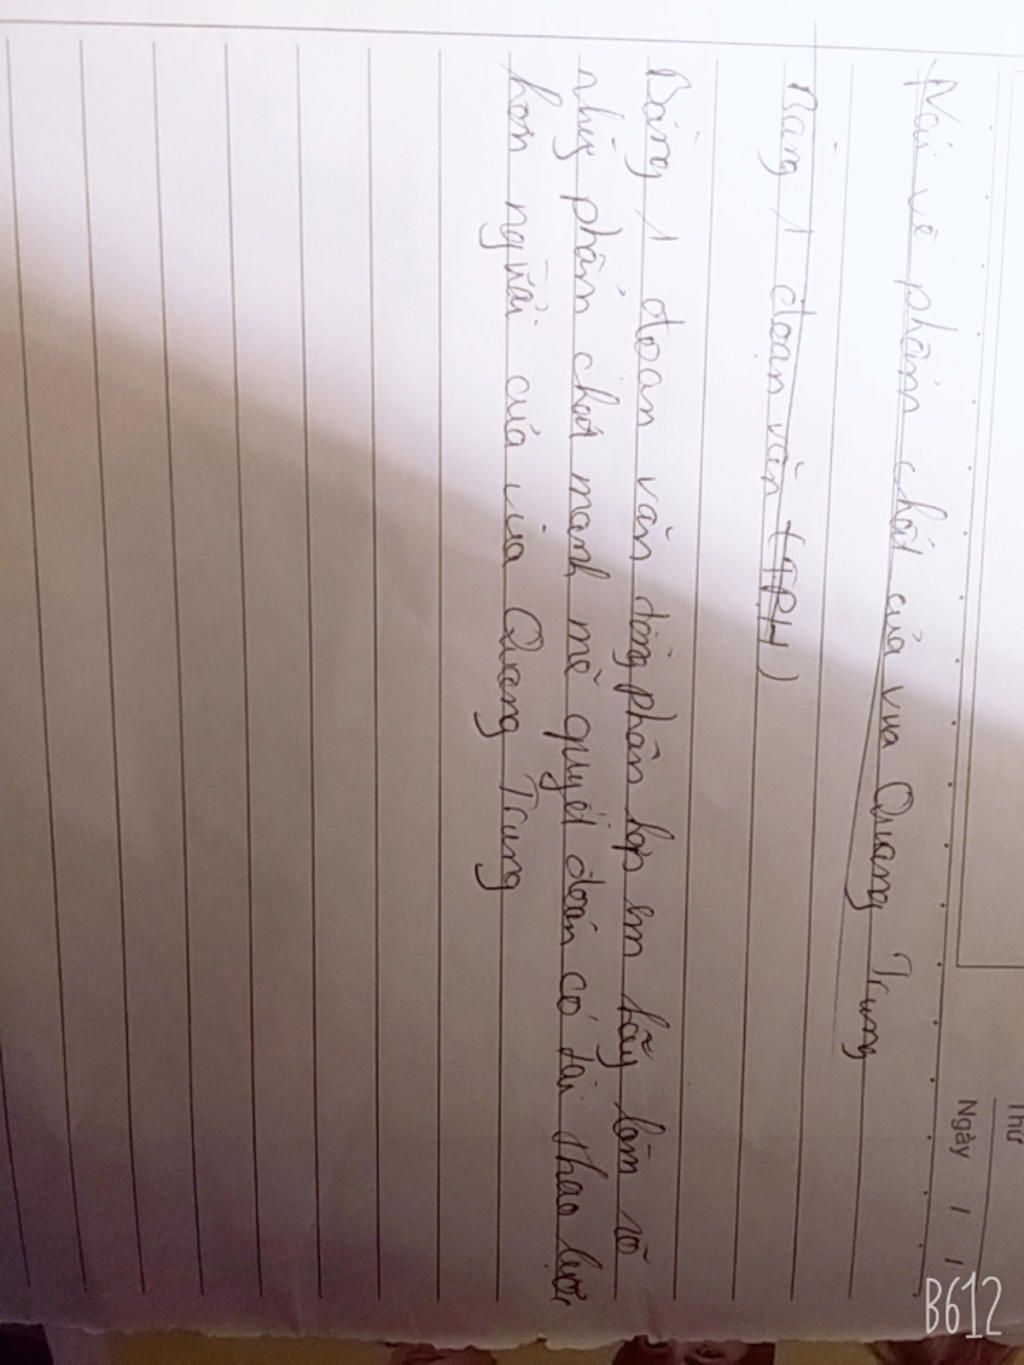 Thứ
Ngày / /
Nói về phẩm chất của vua Quang Trung
Bằng 1 đoạn văn (TPH)
Bằng 1 đoạn văn tổng phân hợp em hãy làm rõ
những phẩm chất mạnh mẽ quyết đoán có tài thao lược
hơn người của vua Quang Trung
B612